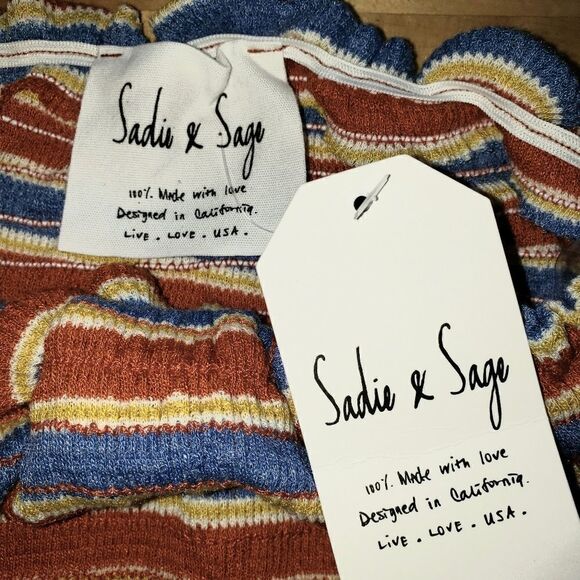 Sadie & Sage
100% Made with love
Designed in California.
LIVE . LOVE . USA .
Sadie & Sage
100% Made with love
Designed in California.
LIVE . LOVE . USA .